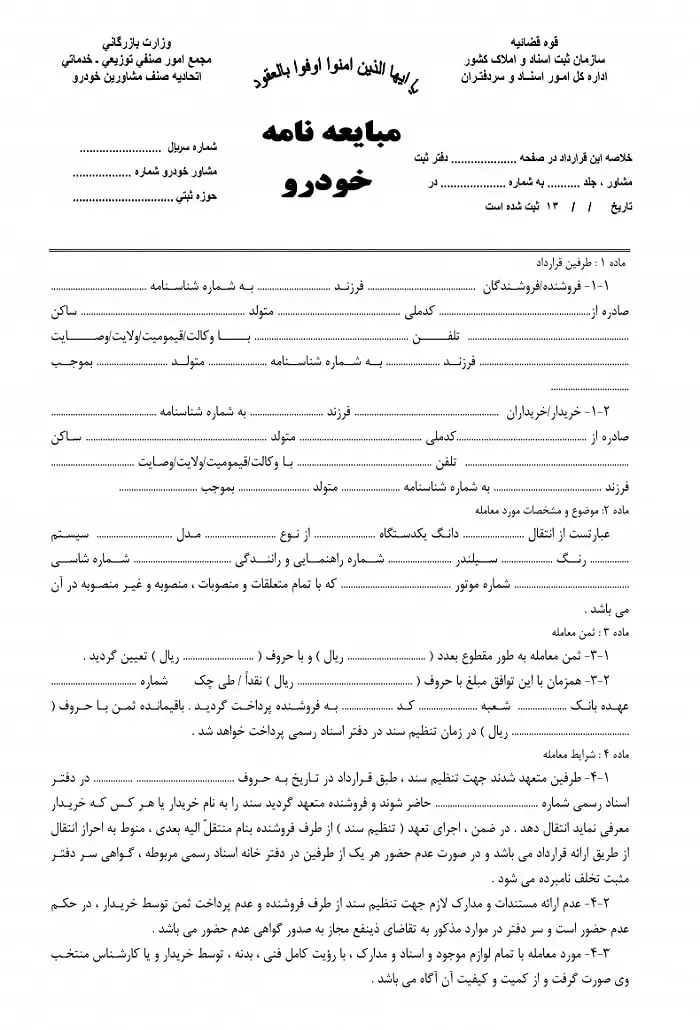 قوه قضائیه
سازمان ثبت اسناد و املاک کشور
اداره کل امور اسناد و سردفتران
یا ایها الذین امنوا اوفوا بالعقود
وزارت بازرگاني
مجمع امور صنفي توزيعي ـ خدماتي
اتحاديه صنف مشاورين خودرو
مبایعه نامه
خودرو
خلاصه این قرارداد در صفحه .................... دفتر ثبت
مشاور ، جلد .......... به شماره .................... در
تاریخ / / ۱۳ ثبت شده است
شماره سریال .........................
مشاور خودرو شماره ..................
حوزه ثبتي ...............................
ماده ۱ : طرفین قرارداد
۱-۱- فروشنده/فروشندگان ............................ فرزند ............................ به شماره شناسنامه ............................
صادره از............................ کدملی ............................ متولد ............................ ساکن
............................ تلفن ............................ با وکالت/قیمومیت/ولایت/وصایت
............................ فرزند .................... به شماره شناسنامه .................... متولد .................... بموجب
............................
۱-۲- خریدار/خریداران ............................ فرزند .................... به شماره شناسنامه ............................
صادره از ............................کدملی ............................ متولد ............................ ساکن
............................ تلفن ............................ با وکالت/قیمومیت/ولایت/وصایت ............................
فرزند ............................ به شماره شناسنامه .................... متولد .................... بموجب ............................
ماده ۲: موضوع و مشخصات مورد معامله
عبارتست از انتقال .................... دانگ یکدستگاه .................... از نوع .................... مدل .................... سیستم
................ رنگ ................ سیلندر .................... شماره راهنمایی و رانندگی .................... شماره شاسی
............................ شماره موتور ............................ که با تمام متعلقات و منصوبات ، منصوبه و غیر منصوبه در آن
می باشد .
ماده ۳ : ثمن معامله
۳-۱- ثمن معامله به طور مقطوع بعدد ( ............................ ریال ) و با حروف ( ............................ ریال ) تعیین گردید .
۳-۲- همزمان با این توافق مبلغ با حروف ( ............................ ریال ) نقداً / طی چک شماره ............................
عهده بانک .................... شعبه .................... کد .................... به فروشنده پرداخت گردید . باقیمانده ثمن با حروف (
............................ ریال ) در زمان تنظیم سند در دفتر اسناد رسمی پرداخت خواهد شد .
ماده ۴ : شرایط معامله
۴-۱- طرفین متعهد شدند جهت تنظیم سند ، طبق قرارداد در تاریخ به حروف ............................ ................ در دفتر
اسناد رسمی شماره ............................ حاضر شوند و فروشنده متعهد گردید سند را به نام خریدار یا هر کس که خریدار
معرفی نماید انتقال دهد . در ضمن ، اجرای تعهد ( تنظیم سند ) از طرف فروشنده بنام منتقلٌ الیه بعدی ، منوط به احراز انتقال
از طریق ارائه قرارداد می باشد و در صورت عدم حضور هر یک از طرفین در دفتر خانه اسناد رسمی مربوطه ، گواهی سر دفتر
مثبت تخلف نامبرده می شود .
۴-۲- عدم ارائه مستندات و مدارک لازم جهت تنظیم سند از طرف فروشنده و عدم پرداخت ثمن توسط خریدار ، در حکم
عدم حضور است و سر دفتر در موارد مذکور به تقاضای ذینفع مجاز به صدور گواهی عدم حضور می باشد .
۴-۳- مورد معامله با تمام لوازم موجود و اسناد و مدارک ، با رؤیت کامل فنی ، بدنه ، توسط خریدار و یا کارشناس منتخب
وی صورت گرفت و از کمیت و کیفیت آن آگاه می باشد .